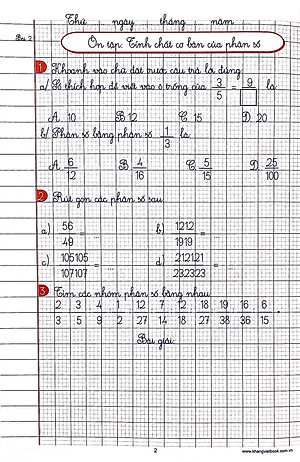 Thứ ngày tháng năm
Bài 2
Ôn tập: Tính chất cơ bản của phân số
1 Khoanh vào chữ đặt trước câu trả lời đúng
a/ Số thích hợp để viết vào ô trống của 3/5 = 9/□ là
A. 10 B. 12 C. 15 D. 20
b/ Phân số bằng phân số 1/3 là
A. 6/12 B. 4/16 C. 5/15 D. 25/100
2 Rút gọn các phân số sau
a) 56/49 = ... b) 1212/1919 = ...
c) 105105/107107 = ... d) 212121/232323 = ...
3 Tìm các nhóm phân số bằng nhau
2 3 4 1 12 7 12 18 19 16 6
3 5 9 2 27 14 18 27 38 36 15
Bài giải
2
www.khangvietbook.com.vn